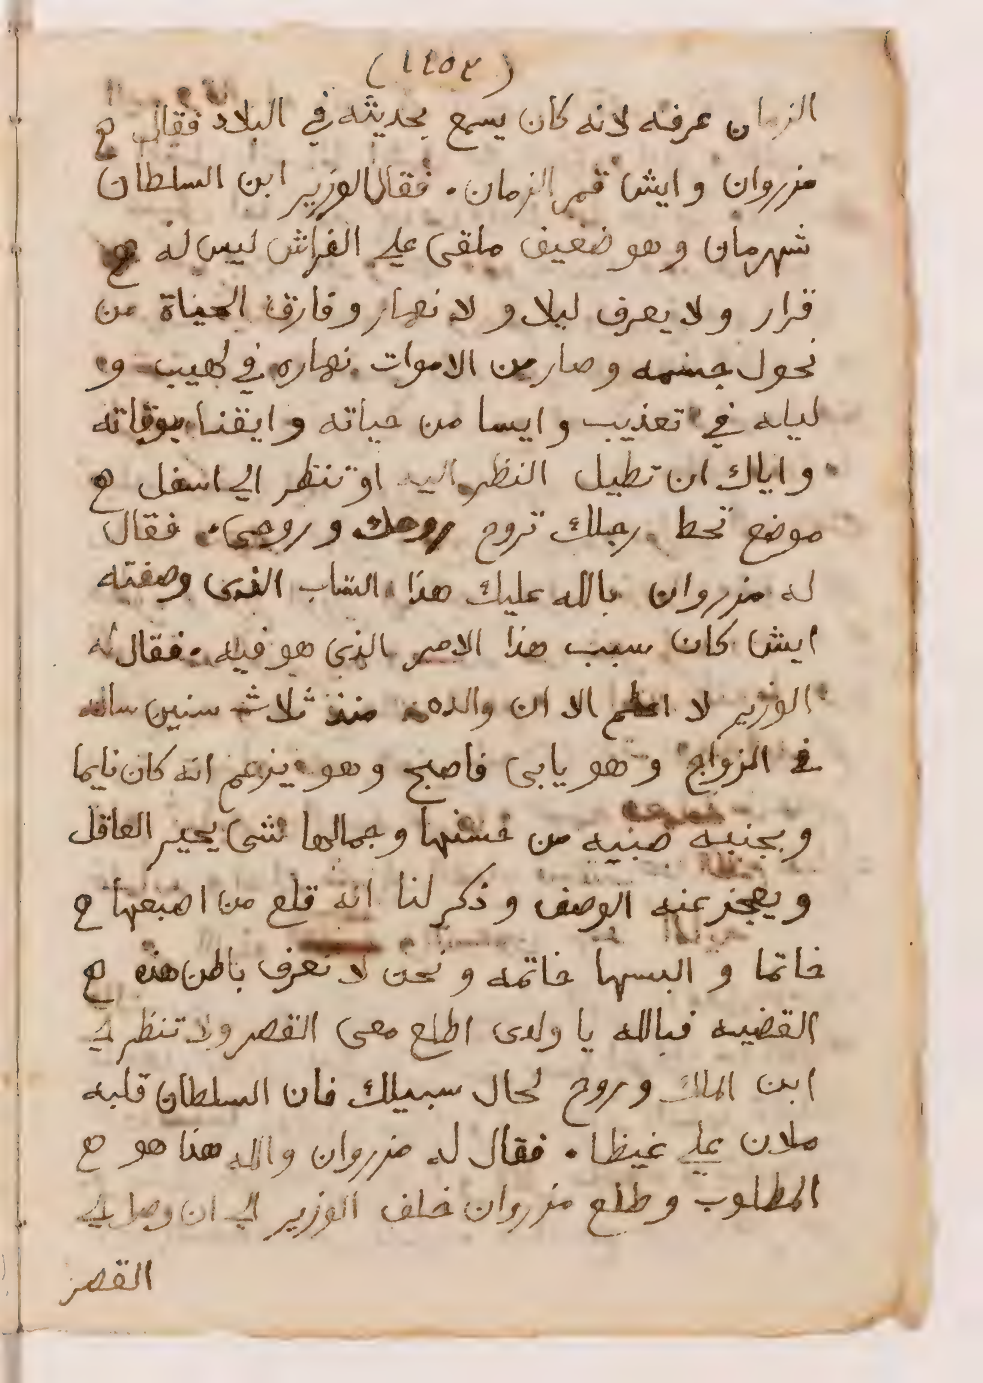 (١٤٥٣)
الزمان عرفه لانه كان يسمع بحديثه في البلاد فقال
مزروان وايش قمر الزمان . فقال الوزير ابن السلطان
شهرمان وهو ضعيف ملقى علي الفراش ليس له
قرار ولا يعرف ليلا ولا نهار وفارق الحياة من
نحول جسمه وصار من الاموات نهاره في لهيب و
ليله في تعذيب وايسا من حياته وايقنا بوفاته
واياك ان تطيل النظر اليه او تنظر الي اسفل
موضع تحط رجلك تروح روحك وروحي . فقال
له مزروان بالله عليك هذا الشاب الذى وصفته
ايش كان سبب هذا الامر الذي هو فيه . فقال له
الوزير لا اعلم الا ان والده منذ ثلاث سنين ساله
في الزواج وهو يابى فاصبح وهو يزعم انه كان نايما
وبجنبه صبيه من حسنها وجمالها شي يحير العاقل
ويعجز عنه الوصف وذكر لنا انه قلع من اصبعها
خاتما والبسها خاتمه ونحن لا نعرف باطن هذه
القضيه فبالله يا ولدى اطلع معى القصر ولا تنظر لي
ابن الملك وروح لحال سبيلك فان السلطان قلبه
ملان علي غيظا . فقال له مزروان والله هذا هو
المطلوب وطلع مزروان خلف الوزير الي ان وصل لي
القصر